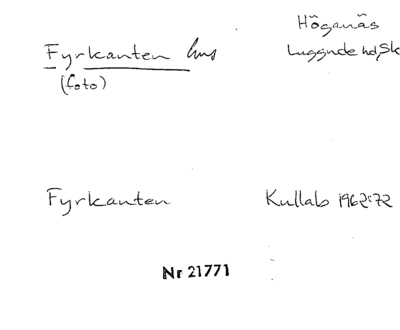 Höganäs
Fyrkanten hus Luggude hd, Sk
(foto)
Fyrkanten Kullab 1962:72
Nr 21771